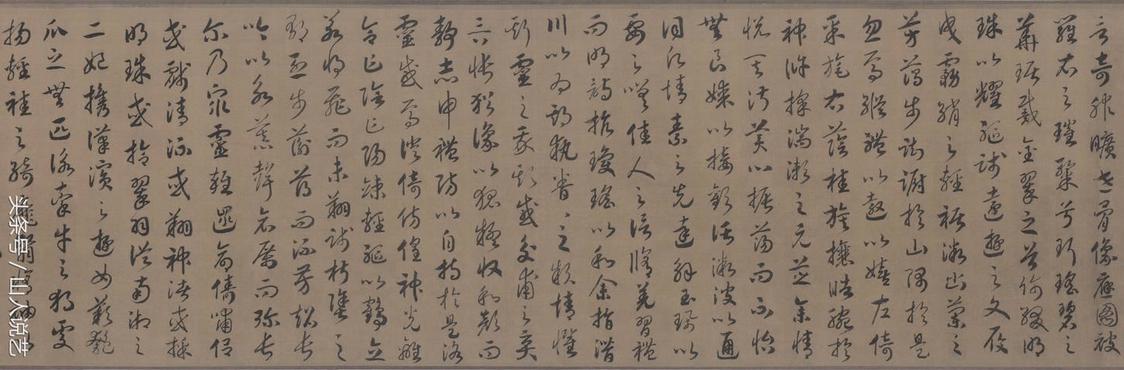 言奇服曠世骨像應圖披
羅衣之璀粲兮珥瑤碧之
華琚戴金翠之首飾綴明
珠以耀軀踐遠遊之文履
曳霧綃之輕裾微幽蘭之
芳藹步踟躕於山隅於是
忽焉縱體以遨以嬉左倚
采旄右蔭桂旗攘皓腕於
神滸採湍瀨之玄芝余情
悅其淑美心振蕩而不怡
無良媒以接歡託微波以通
詞願情素之先達解玉珮以
要之嗟佳人之信脩羌習禮
而明詩抗瓊瑤以和余指潛
川以為期執眷眷之款情懼
斯靈之我欺感交甫之棄
言悵猶豫以狐疑收和顏而
靜志申禮防以自持於是洛
靈感焉徙倚彷徨神光離
合乍陰乍陽竦輕軀以鶴立
若將飛而未翔踐椒塗之
郁烈步蘅薄而流芳超長
吟以永慕聲哀厲而彌長
爾乃眾靈雜遝命儔嘯侶
或戲清流或翔神渚或採
明珠或拾翠羽從南湘之
二妃攜漢濱之遊女歎匏
瓜之無匹詠牽牛之獨處
揚輕袿之猗
头条号/山人说艺